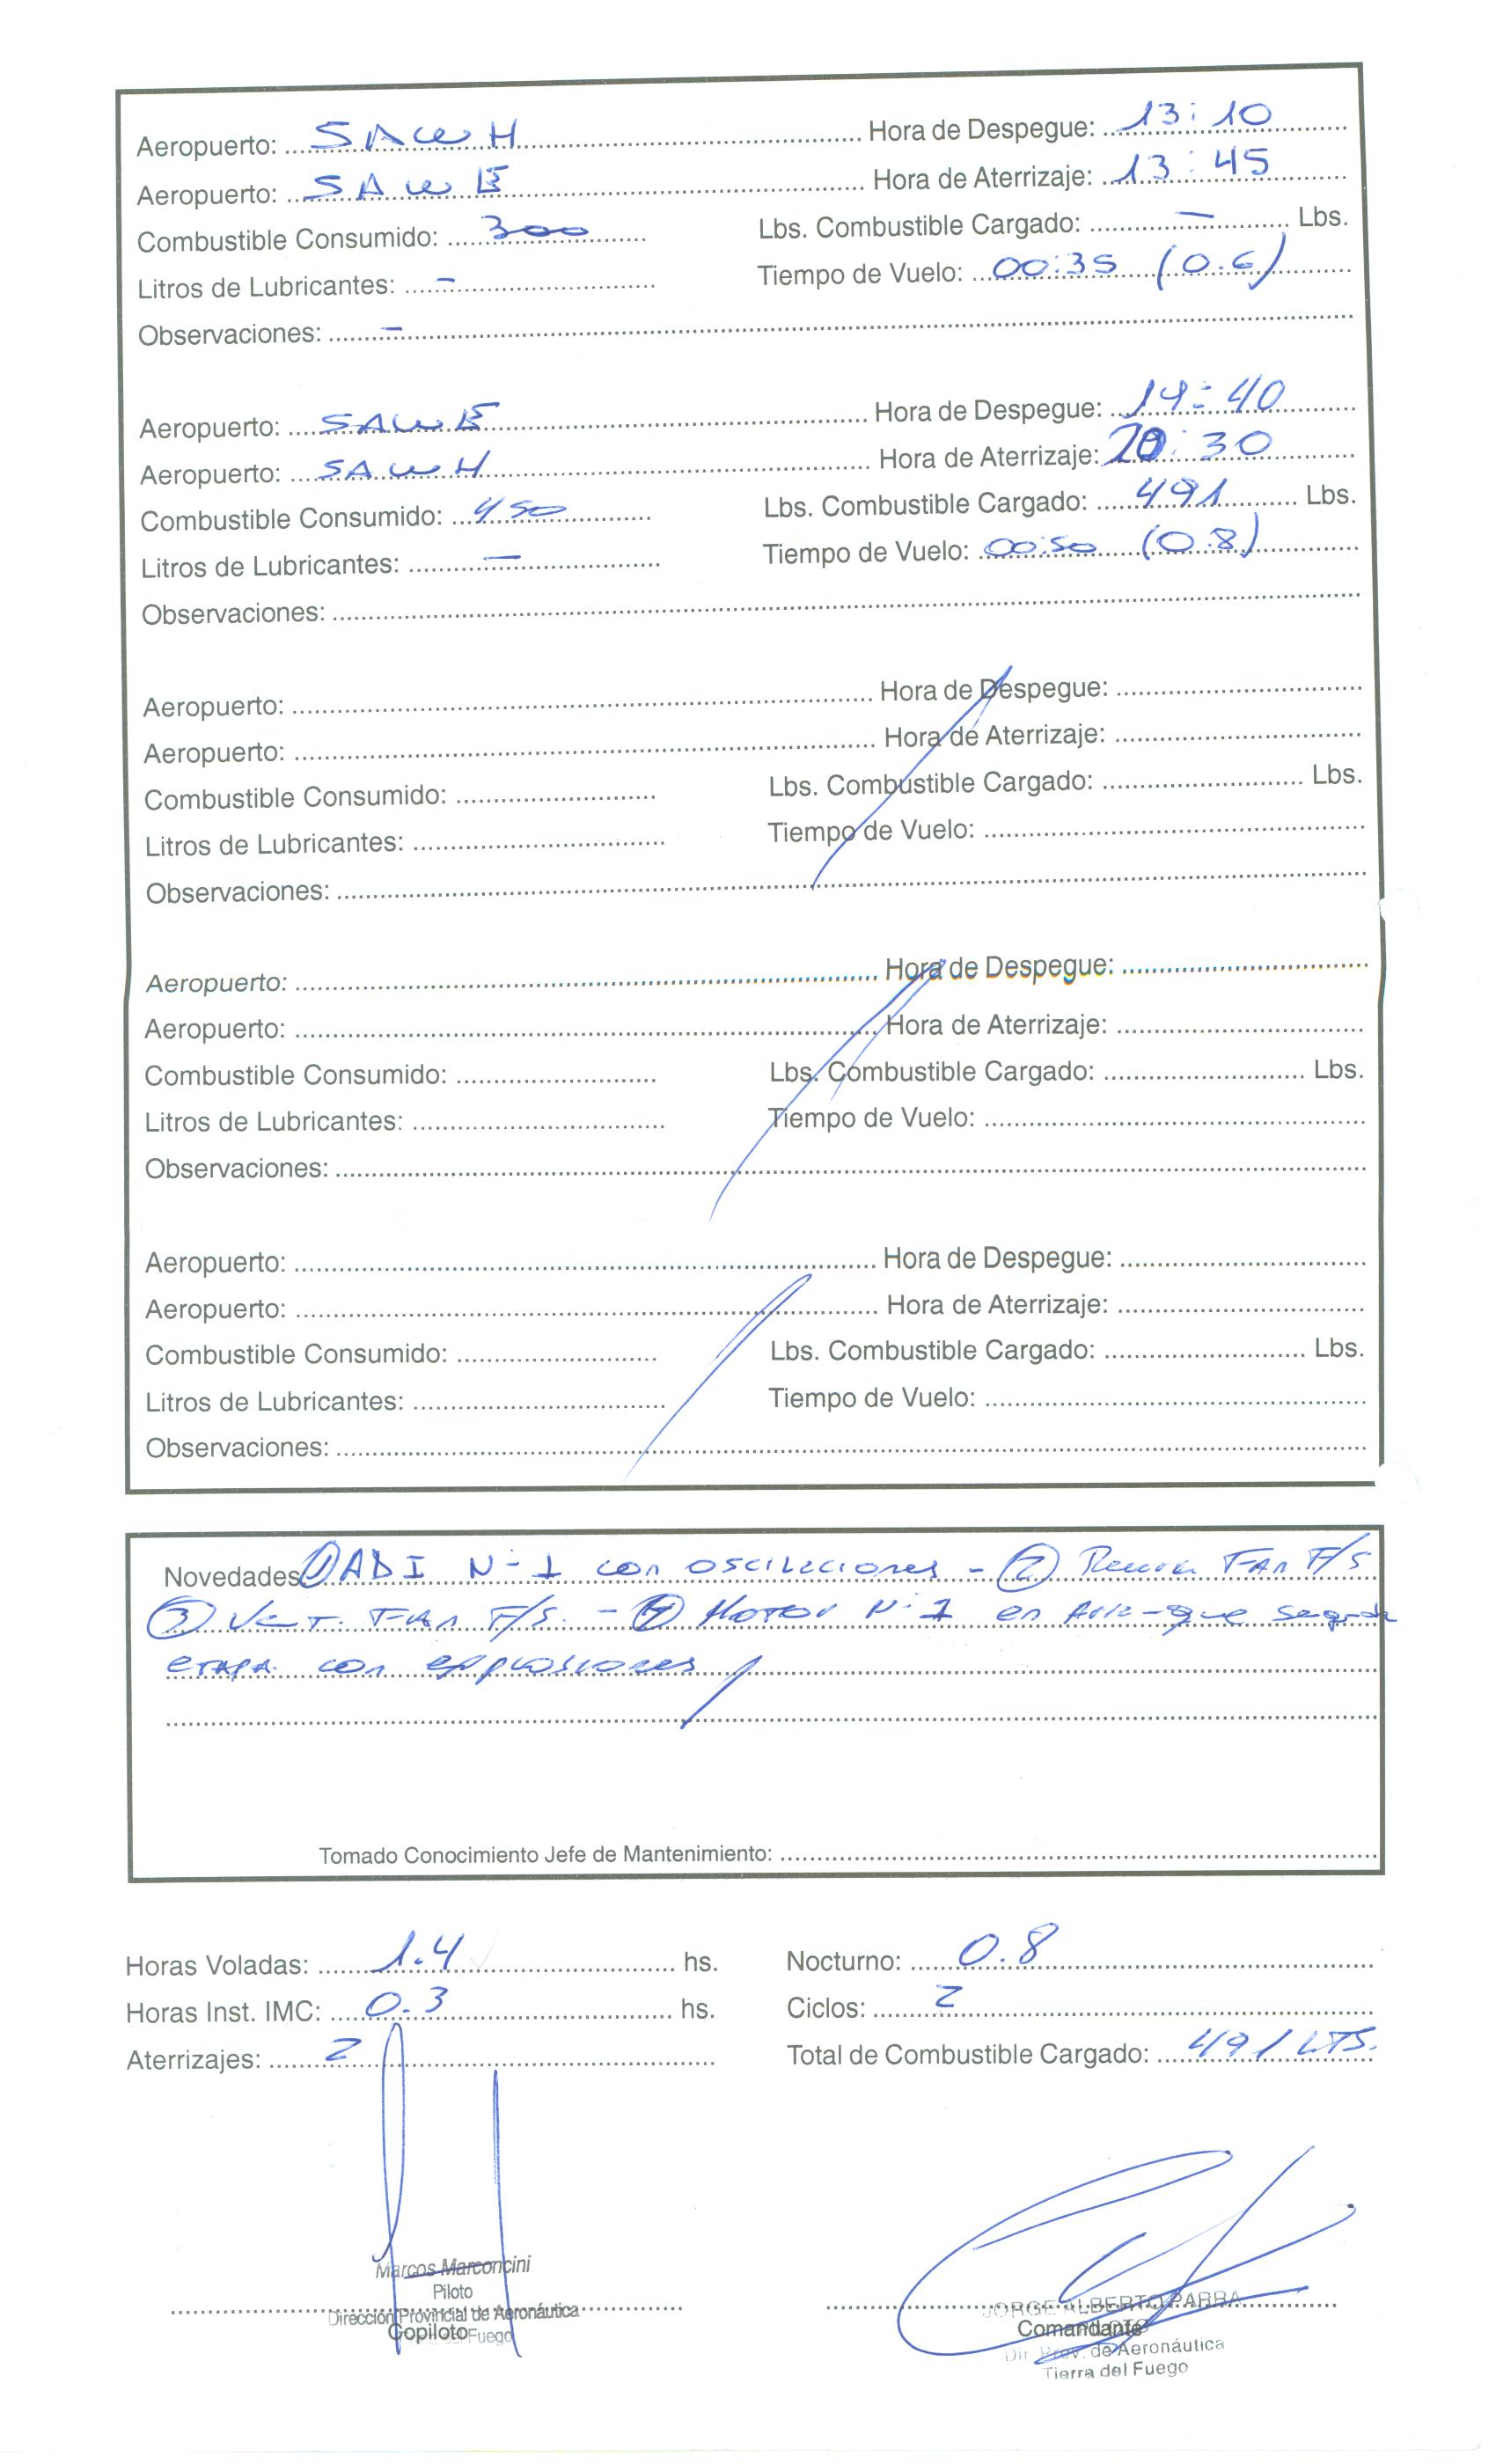 Aeropuerto: SAWH Hora de Despegue: 13:10
Aeropuerto: SAWE Hora de Aterrizaje: 13:45
Combustible Consumido: 300 Lbs. Combustible Cargado: — Lbs.
Litros de Lubricantes: - Tiempo de Vuelo: 00:35 (0.6)
Observaciones: -
Aeropuerto: SAWE Hora de Despegue: 19:40
Aeropuerto: SAWH Hora de Aterrizaje: 20:30
Combustible Consumido: 450 Lbs. Combustible Cargado: 491 Lbs.
Litros de Lubricantes: — Tiempo de Vuelo: 00:50 (0.8)
Observaciones:
Aeropuerto: Hora de Despegue:
Aeropuerto: Hora de Aterrizaje:
Combustible Consumido: Lbs. Combustible Cargado: Lbs.
Litros de Lubricantes: Tiempo de Vuelo:
Observaciones:
Aeropuerto: Hora de Despegue:
Aeropuerto: Hora de Aterrizaje:
Combustible Consumido: Lbs. Combustible Cargado: Lbs.
Litros de Lubricantes: Tiempo de Vuelo:
Observaciones:
Aeropuerto: Hora de Despegue:
Aeropuerto: Hora de Aterrizaje:
Combustible Consumido: Lbs. Combustible Cargado: Lbs.
Litros de Lubricantes: Tiempo de Vuelo:
Observaciones:
Novedades ① ADI N-1 con oscilaciones - ② FAN F/S
③ Vent. FAN F/S. - ④ Motor N-1 en Arranque segunda
etapa con explosiones
Tomado Conocimiento Jefe de Mantenimiento:
Horas Voladas: 1.4 hs. Nocturno: 0.8
Horas Inst. IMC: 0.3 hs. Ciclos: 2
Aterrizajes: 2 Total de Combustible Cargado: 491 LTS.
Marcos Marconcini
Piloto
Dirección Provincial de Aeronáutica
Copiloto Fuego
JORGE ALBERTO PARRA
Comandante
Dir. Prov. de Aeronáutica
Tierra del Fuego